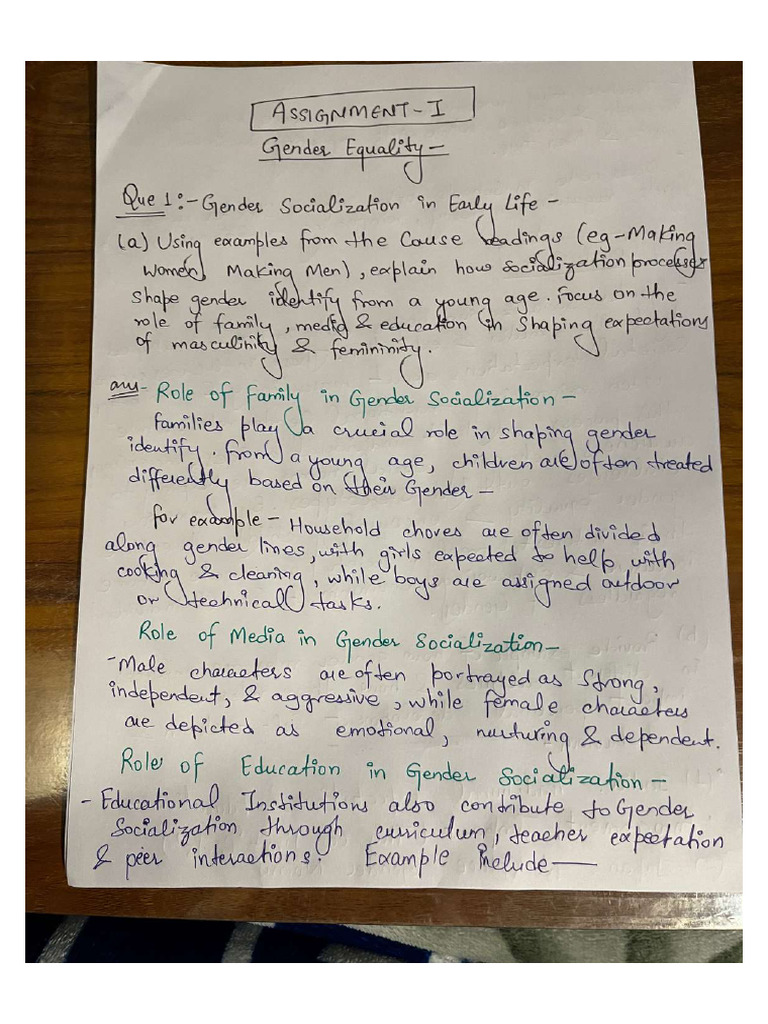 ASSIGNMENT-I
Gender Equality-
Que 1:- Gender Socialization in Early Life -
(a) Using examples from the Cause readings (eg-Making
Women, Making Men), explain how socialization processes
shape gender identify from a young age. Focus on the
role of family, media & education in shaping expectations
of masculinity & femininity.
ans- Role of Family in Gender Socialization -
Families play a crucial role in shaping gender
identify. From a young age, children are often treated
differently based on their Gender -
for example - Household chores are often divided
along gender lines, with girls expected to help with
cooking & cleaning, while boys are assigned outdoor
or technical tasks.
Role of Media in Gender Socialization -
- Male characters are often portrayed as strong,
independent, & aggressive, while female characters
are depicted as emotional, nurturing & dependent.
Role of Education in Gender Socialization -
- Educational Institutions also contribute to Gender
Socialization through curriculum, teacher expectation
& peer interactions. Example include —